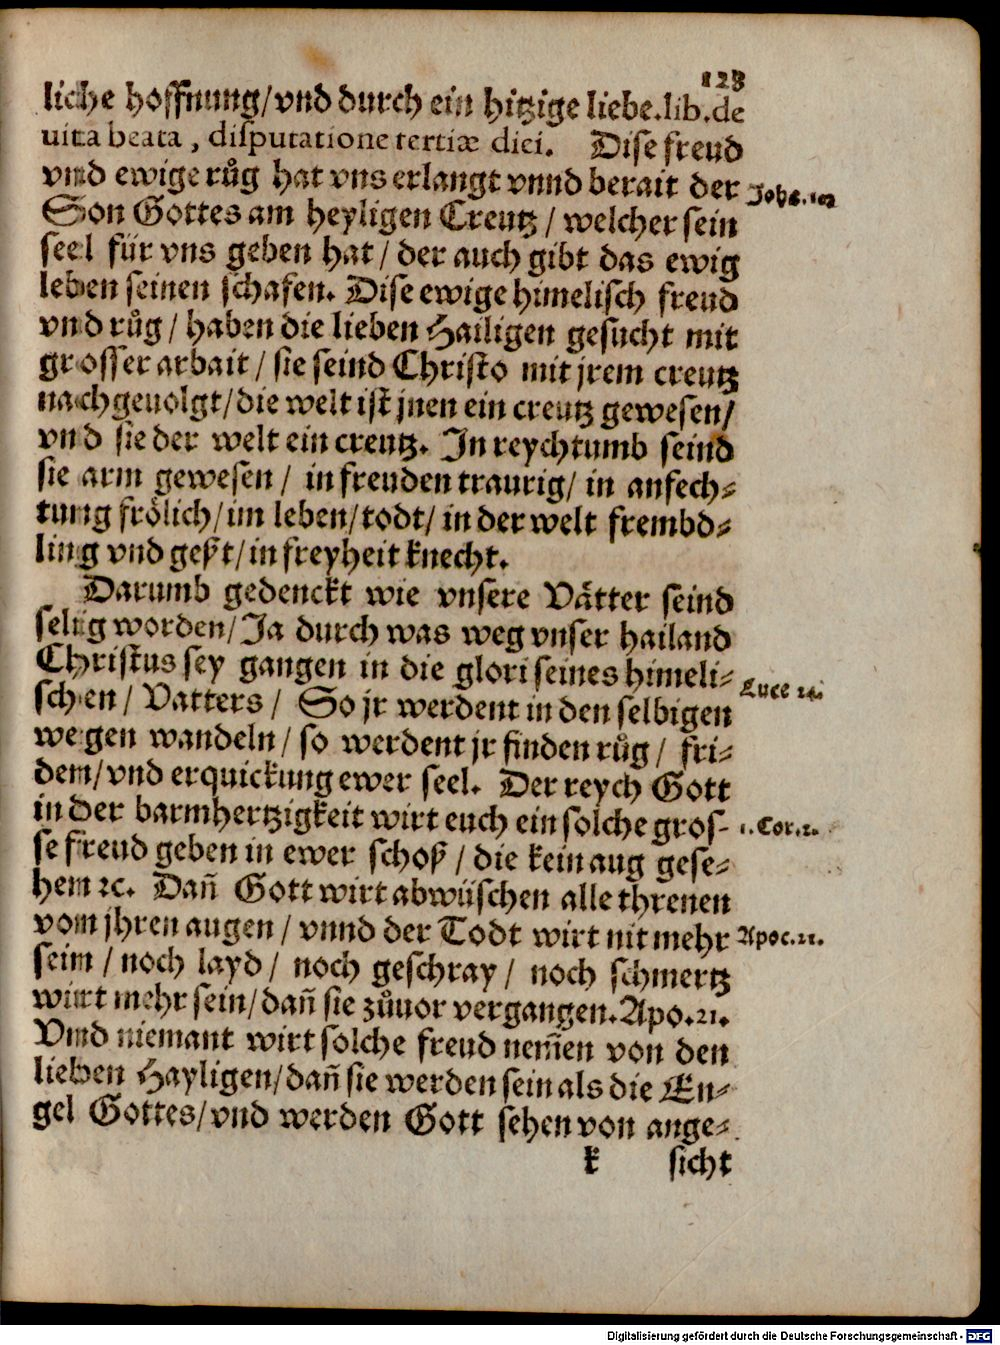 123
liche hoffnung/ vnd durch ein hitzige liebe. lib. de
vita beata, disputatione tertiæ diei. Dise freud
vnd ewige růg hat vns erlangt vnnd berait der
Joha. 10
Son Gottes am heyligen Creutz/ welcher sein
seel für vns geben hat/ der auch gibt das ewig
leben seinen schafen. Dise ewige himelisch freud
vnd růg/ haben die lieben Hailigen gesucht mit
grosser arbait/ sie seind Christo mit jrem creutz
nachgeuolgt/ die welt ist jnen ein creutz gewesen/
vnd sie der welt ein creutz. In reychtumb seind
sie arm gewesen/ in freuden traurig/ in anfech-
tung frölich/ im leben/ todt/ in der welt frembd-
ling vnd geßt/ in freyheit knecht.
Darumb gedenckt wie vnsere Vätter seind
selig worden/ Ja durch was weg vnser hailand
Christus sey gangen in die glori seines himeli-
Luce 24.
schen/ Vatters/ So jr werdent in den selbigen
wegen wandeln/ so werdent jr finden růg/ fri-
dem/ vnd erquickung ewer seel. Der reych Gott
in der barmhertzigkeit wirt euch ein solche gros-
1. Cor. 2.
se freud geben in ewer schoß/ die kein aug gese-
hem ꝛc. Dañ Gott wirt abwüschen alle threnen
vom jhren augen/ vnnd der Todt wirt nit mehr
Apoc. 21.
seim/ noch layd/ noch geschray/ noch schmertz
wirt mehr sein/ dañ sie zůuor vergangen. Apo. 21.
Vnd niemant wirt solche freud nem̃en von den
lieben Hayligen/ dañ sie werden sein als die En-
gel Gottes/ vnd werden Gott sehen von ange-
k sicht
Digitalisierung gefördert durch die Deutsche Forschungsgemeinschaft - DFG